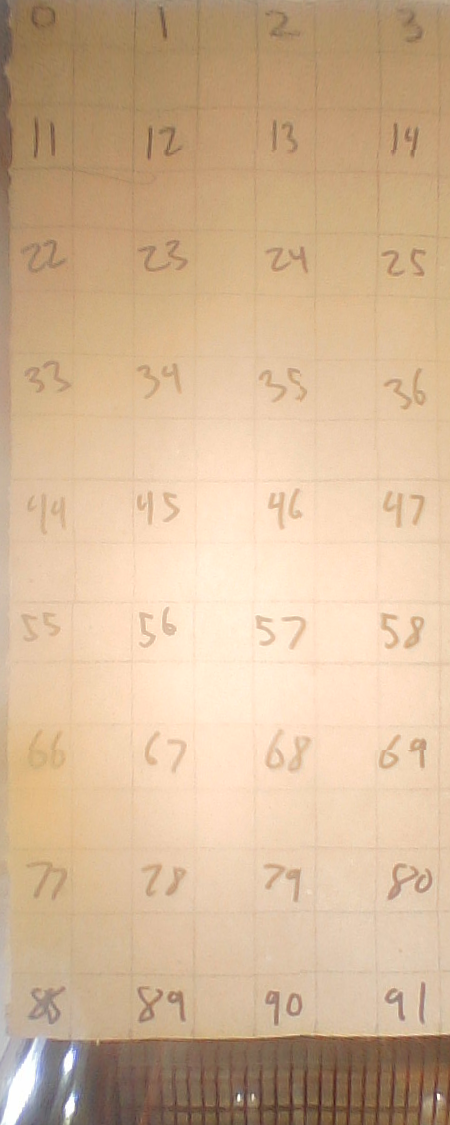 0 1 2 3
11 12 13 14
22 23 24 25
33 34 35 36
44 45 46 47
55 56 57 58
66 67 68 69
77 78 79 80
88 89 90 91